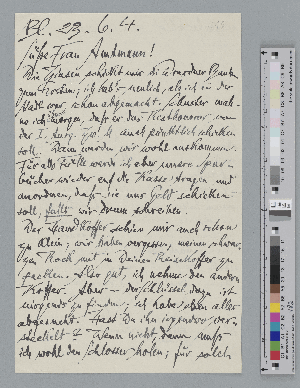 Bl. 29. 6. 4.
Süße Frau Amtmann!
Die Zinsen schickt mir die Dresdner Bank
zum Termin; ich hab's neulich, als ich in der
Stadt war, schon abgemacht.
ich morgen, daß er das Honorar von
der I. pünktlich schicken
soll. Dann werden wir wohl auskommen.
Für alle Fälle werde ich aber unsere Spar-
bücher wieder auf die Kasse tragen und
anordnen, daß sie uns Geld schicken
soll, falls wir drum schreiben.
Der Handkoffer schien mir auch schon
zu klein; wir haben vergessen, meinen schwar-
zen Rock mit in Deinen Reisekoffer zu
packen. Also gut, ich nehme den andern
Koffer. Aber — der Schlüssel dazu ist
nirgends zu finden; ich habe eben alles
abgesucht. Hast Du ihn irgendwo ver-
steckelt? Wenn nicht, dann muß
ich wohl den Schlosser holen; für solch